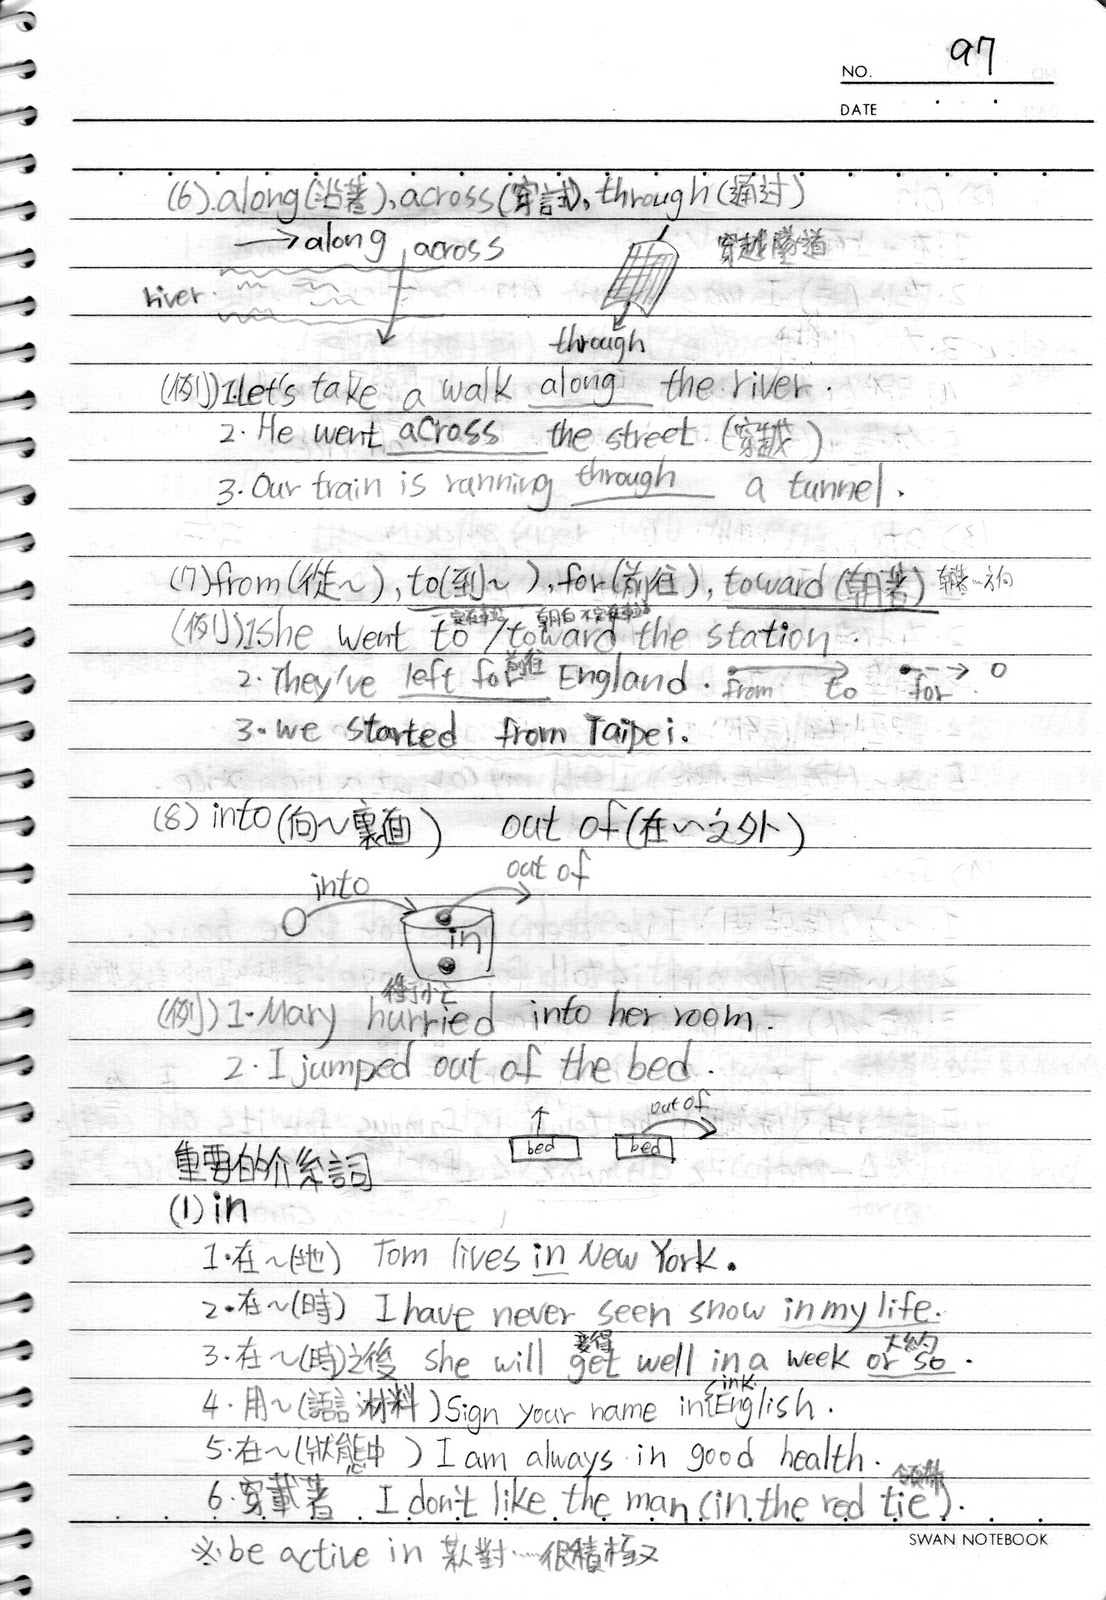 NO. 97
DATE
(6).along(沿著),across(穿越),through(通过)
→along across 穿越隧道
river
through
(例)1.Let's take a walk along the river.
2. He went across the street.(穿越)
3. Our train is running through a tunnel.
(7)from(從~),to(到~),for(前往),toward(朝著) 朝著~方向
一定在車站 朝向 不定在車站
(例)1she went to /toward the station.
前往
2. They've left for England. from to for
3. we started from Taipei.
(8) into(向~裏面) out of(在~之外)
into out of
in
衝忙
(例)1. Mary hurried into her room.
2. I jumped out of the bed.
out of
bed bed
重要的介系詞
(1) in
1.在~(地) Tom lives in New York.
2.在~(時) I have never seen snow in my life.
變得 大約
3.在~(時)之後 she will get well in a week or so.
ink.
4.用~(語言.材料)Sign your name in English.
5.在~(狀態中) I am always in good health.
領帶
6.穿戴著 I don't like the man (in the red tie).
SWAN NOTEBOOK
※be active in 對……很積極